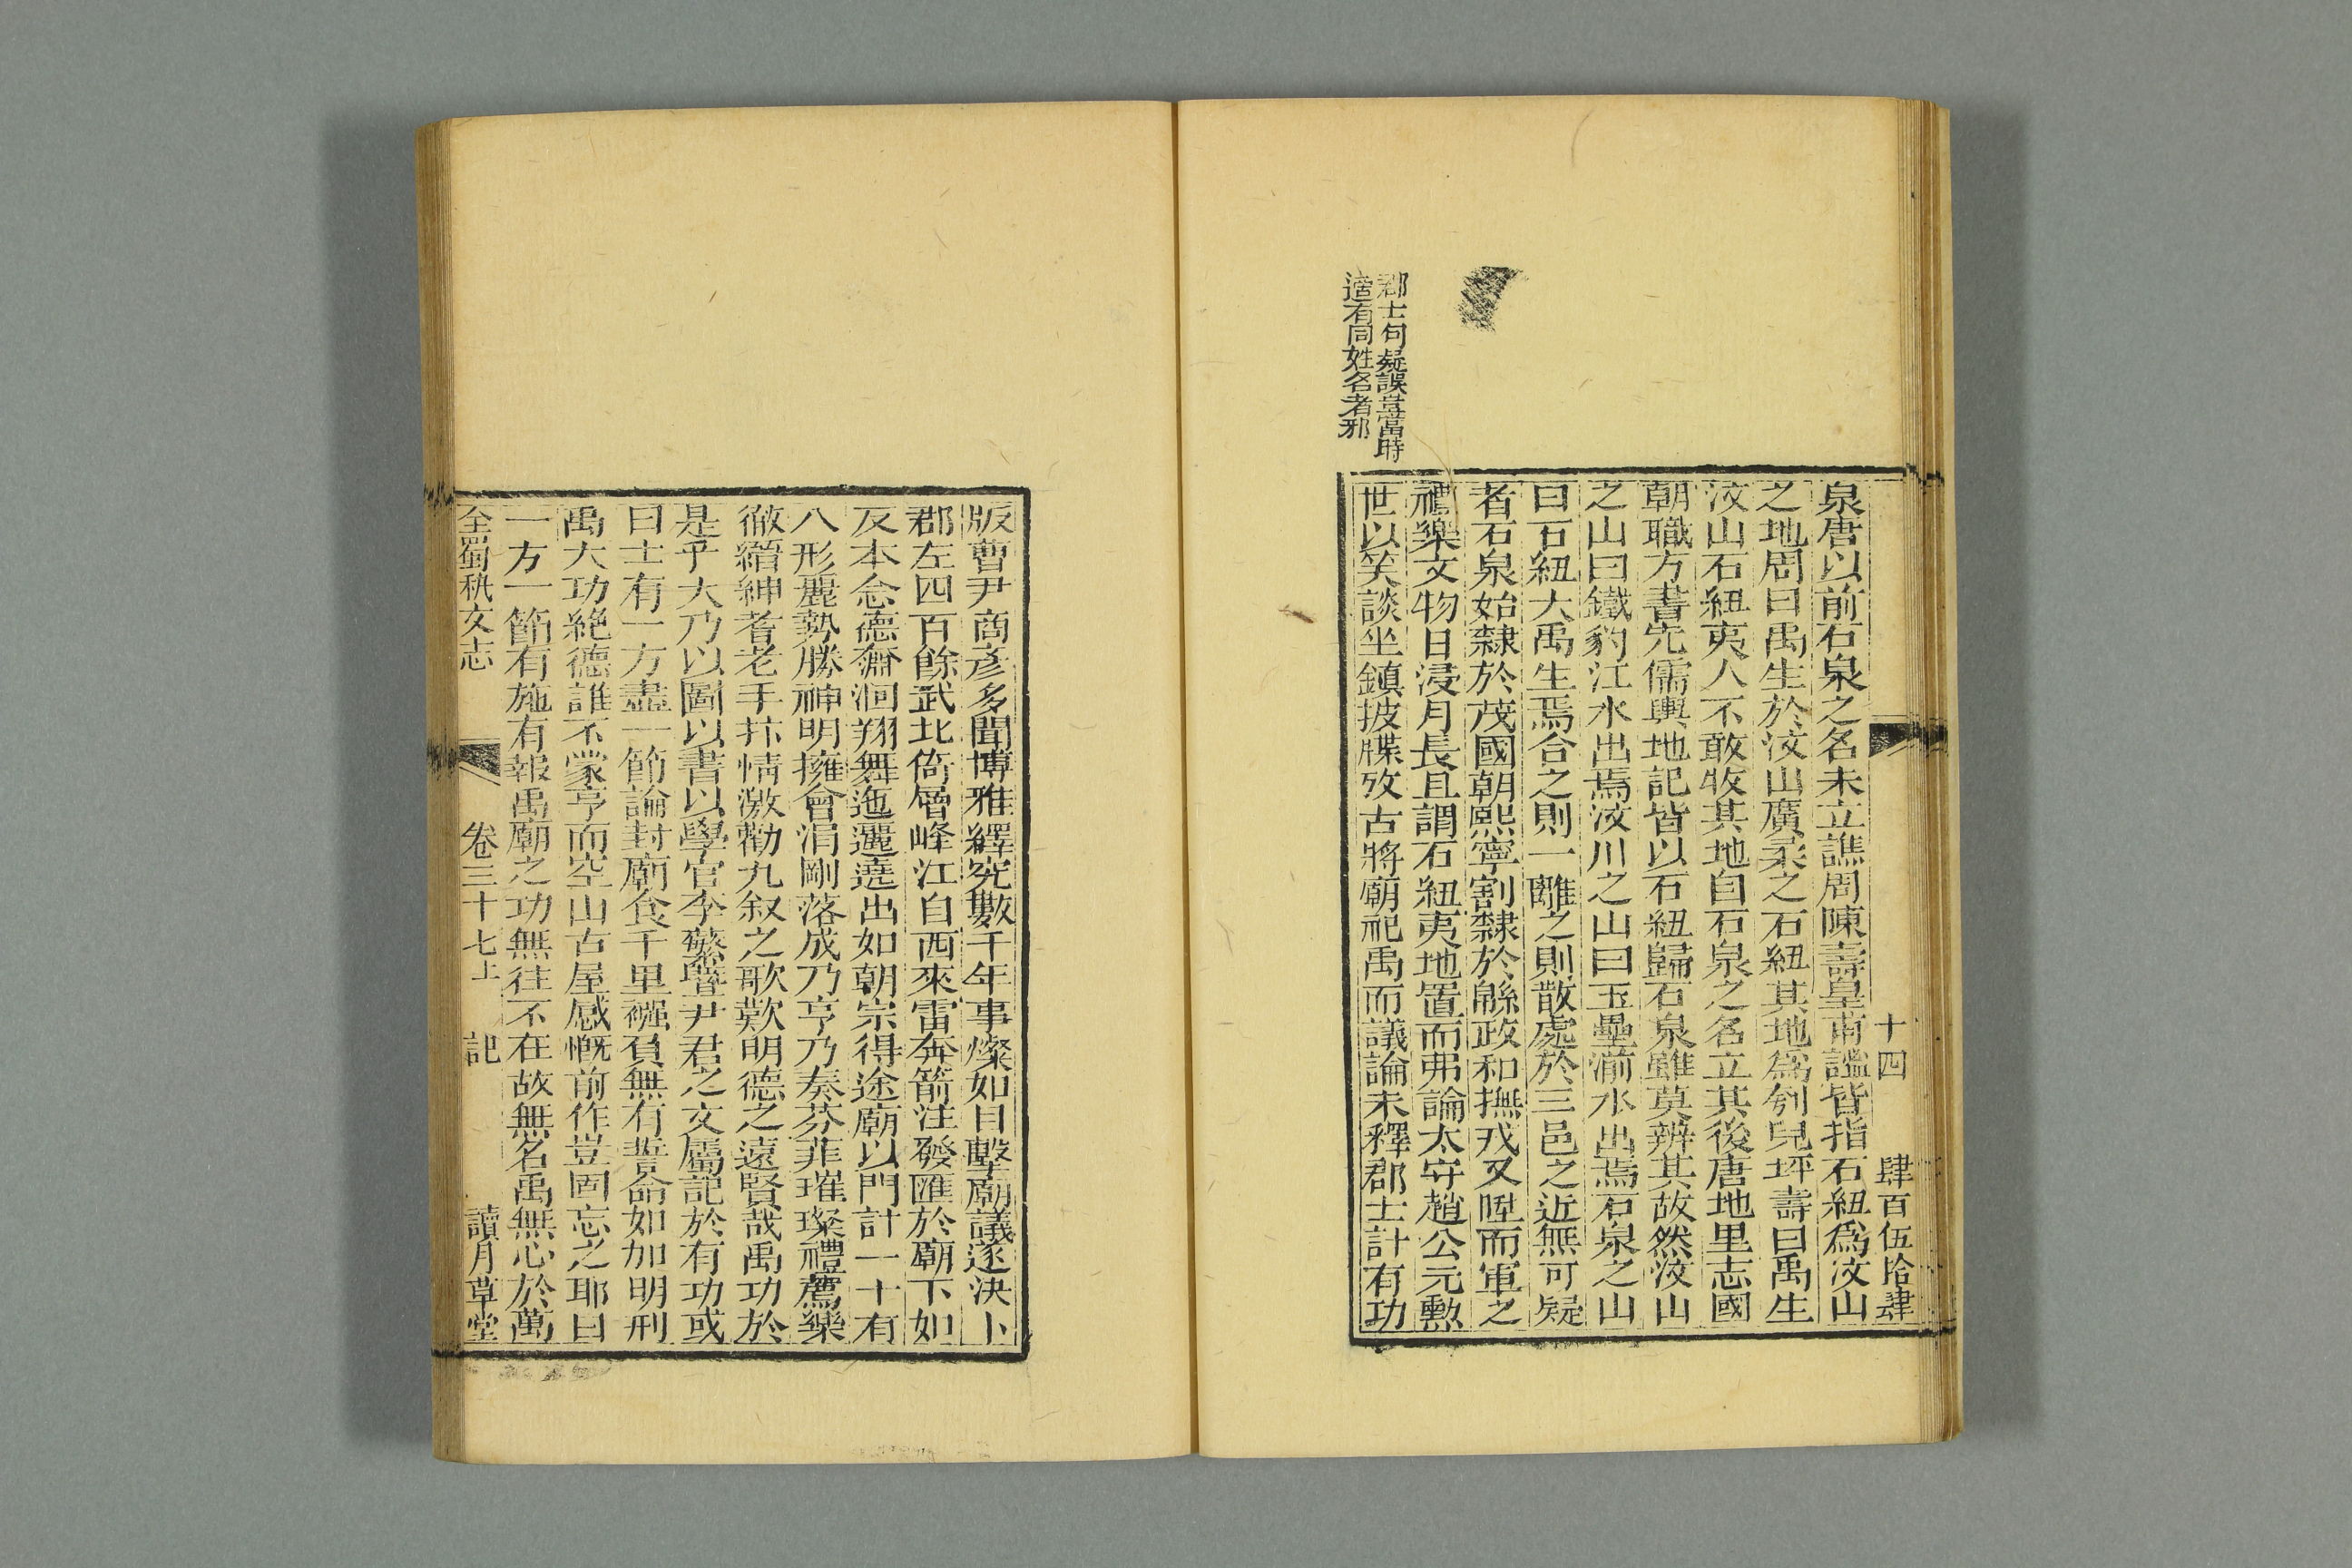 十四　肆百伍拾肆
泉唐以前石泉之名未立譙周陳壽皇甫謐皆指石紐爲汶山
之地周曰禹生於汶山廣柔之石紐其地爲刳兒坪壽曰禹生
汶山石紐夷人不敢牧其地自石泉之名立其後唐地里志國
朝職方書先儒輿地記皆以石紐歸石泉雖莫辨其故然汶山
之山曰鐵豹江水出焉汶川之山曰玉壘湔水出焉石泉之山
曰石紐大禹生焉合之則一離之則散處於三邑之近無可疑
者石泉始隸於茂國朝熙寧割隸於緜政和撫戎又陞而軍之
禮樂文物日浸月長且謂石紐夷地置而弗論太守趙公元勳
世以笑談坐鎮披牒攷古將廟祀禹而議論未釋郡士計有功
郡士句疑誤豈當時
適有同姓名者邪
版曹尹商彥多聞博雅繹究數千年事燦如目擊廟議遂決卜
郡左四百餘武北倚層峰江自西來雷奔箭注發匯於廟下如
反本念德奫洄翔舞迤邐遶出如朝宗得途廟以門計一十有
八形麗勢勝神明擁會涓剛落成乃亨乃奏芬菲璀璨禮薦樂
徹縉紳耆老手抃情激勸九叙之歌歎明德之遠賢哉禹功於
是乎大乃以圖以書以學官李蘩暨尹君之文屬記於有功或
曰士有一方盡一節論封廟食千里襁負無有誓命如加明刑
禹大功絶德誰不蒙亨而空山古屋感慨前作豈固忘之耶曰
一方一節有施有報禹廟之功無往不在故無名禹無心於萬
全蜀秇文志　卷三十七上　記　讀月草堂